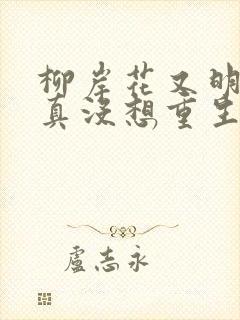 柳岸花又明
真没想重生
盧志永